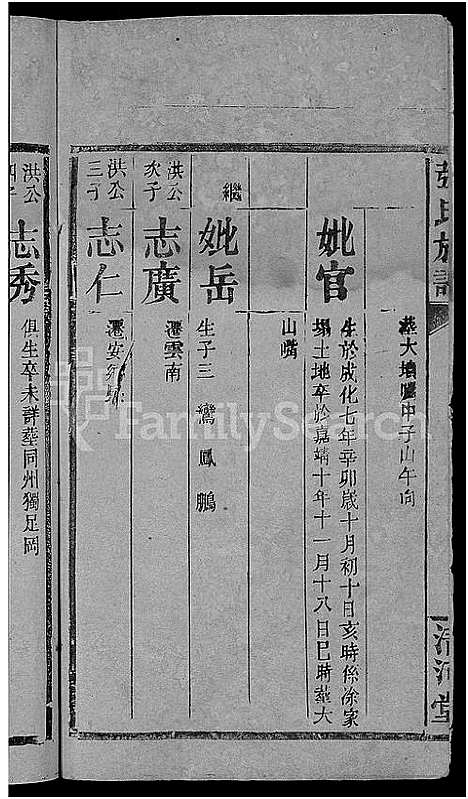 張氏族譜
清河堂
葬大塤嘴中子山午向
妣官
生於成化七年辛卯歲十月初十日亥時係凃家
塌土地卒於嘉靖十年十一月十八日巳時葬大
山嘴
繼
妣岳
生子三 鸞 鳳 鵬
洪公
次子
志廣
遷雲南
洪公
三子
志仁
遷安
洪公
四子
志秀
俱生卒未詳葬同州獨足岡
FamilySearch